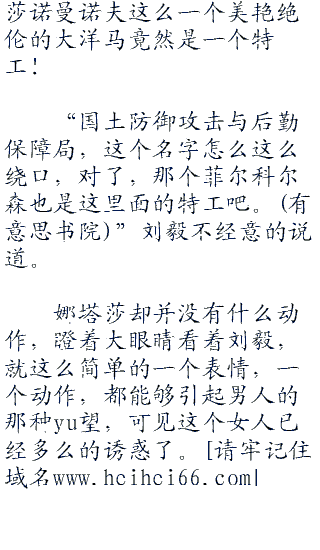 莎诺曼诺夫这么一个美艳绝
伦的大洋马竟然是一个特
工！
“国土防御攻击与后勤
保障局，这个名字怎么这么
绕口，对了，那个菲尔科尔
森也是这里面的特工吧。(有
意思书院)”刘毅不经意的说
道。
娜塔莎却并没有什么动
作，瞪着大眼睛看着刘毅，
就这么简单的一个表情，一
个动作，都能够引起男人的
那种yu望，可见这个女人已
经多么的诱惑了。[请牢记住
域名www.hcihci66.com|